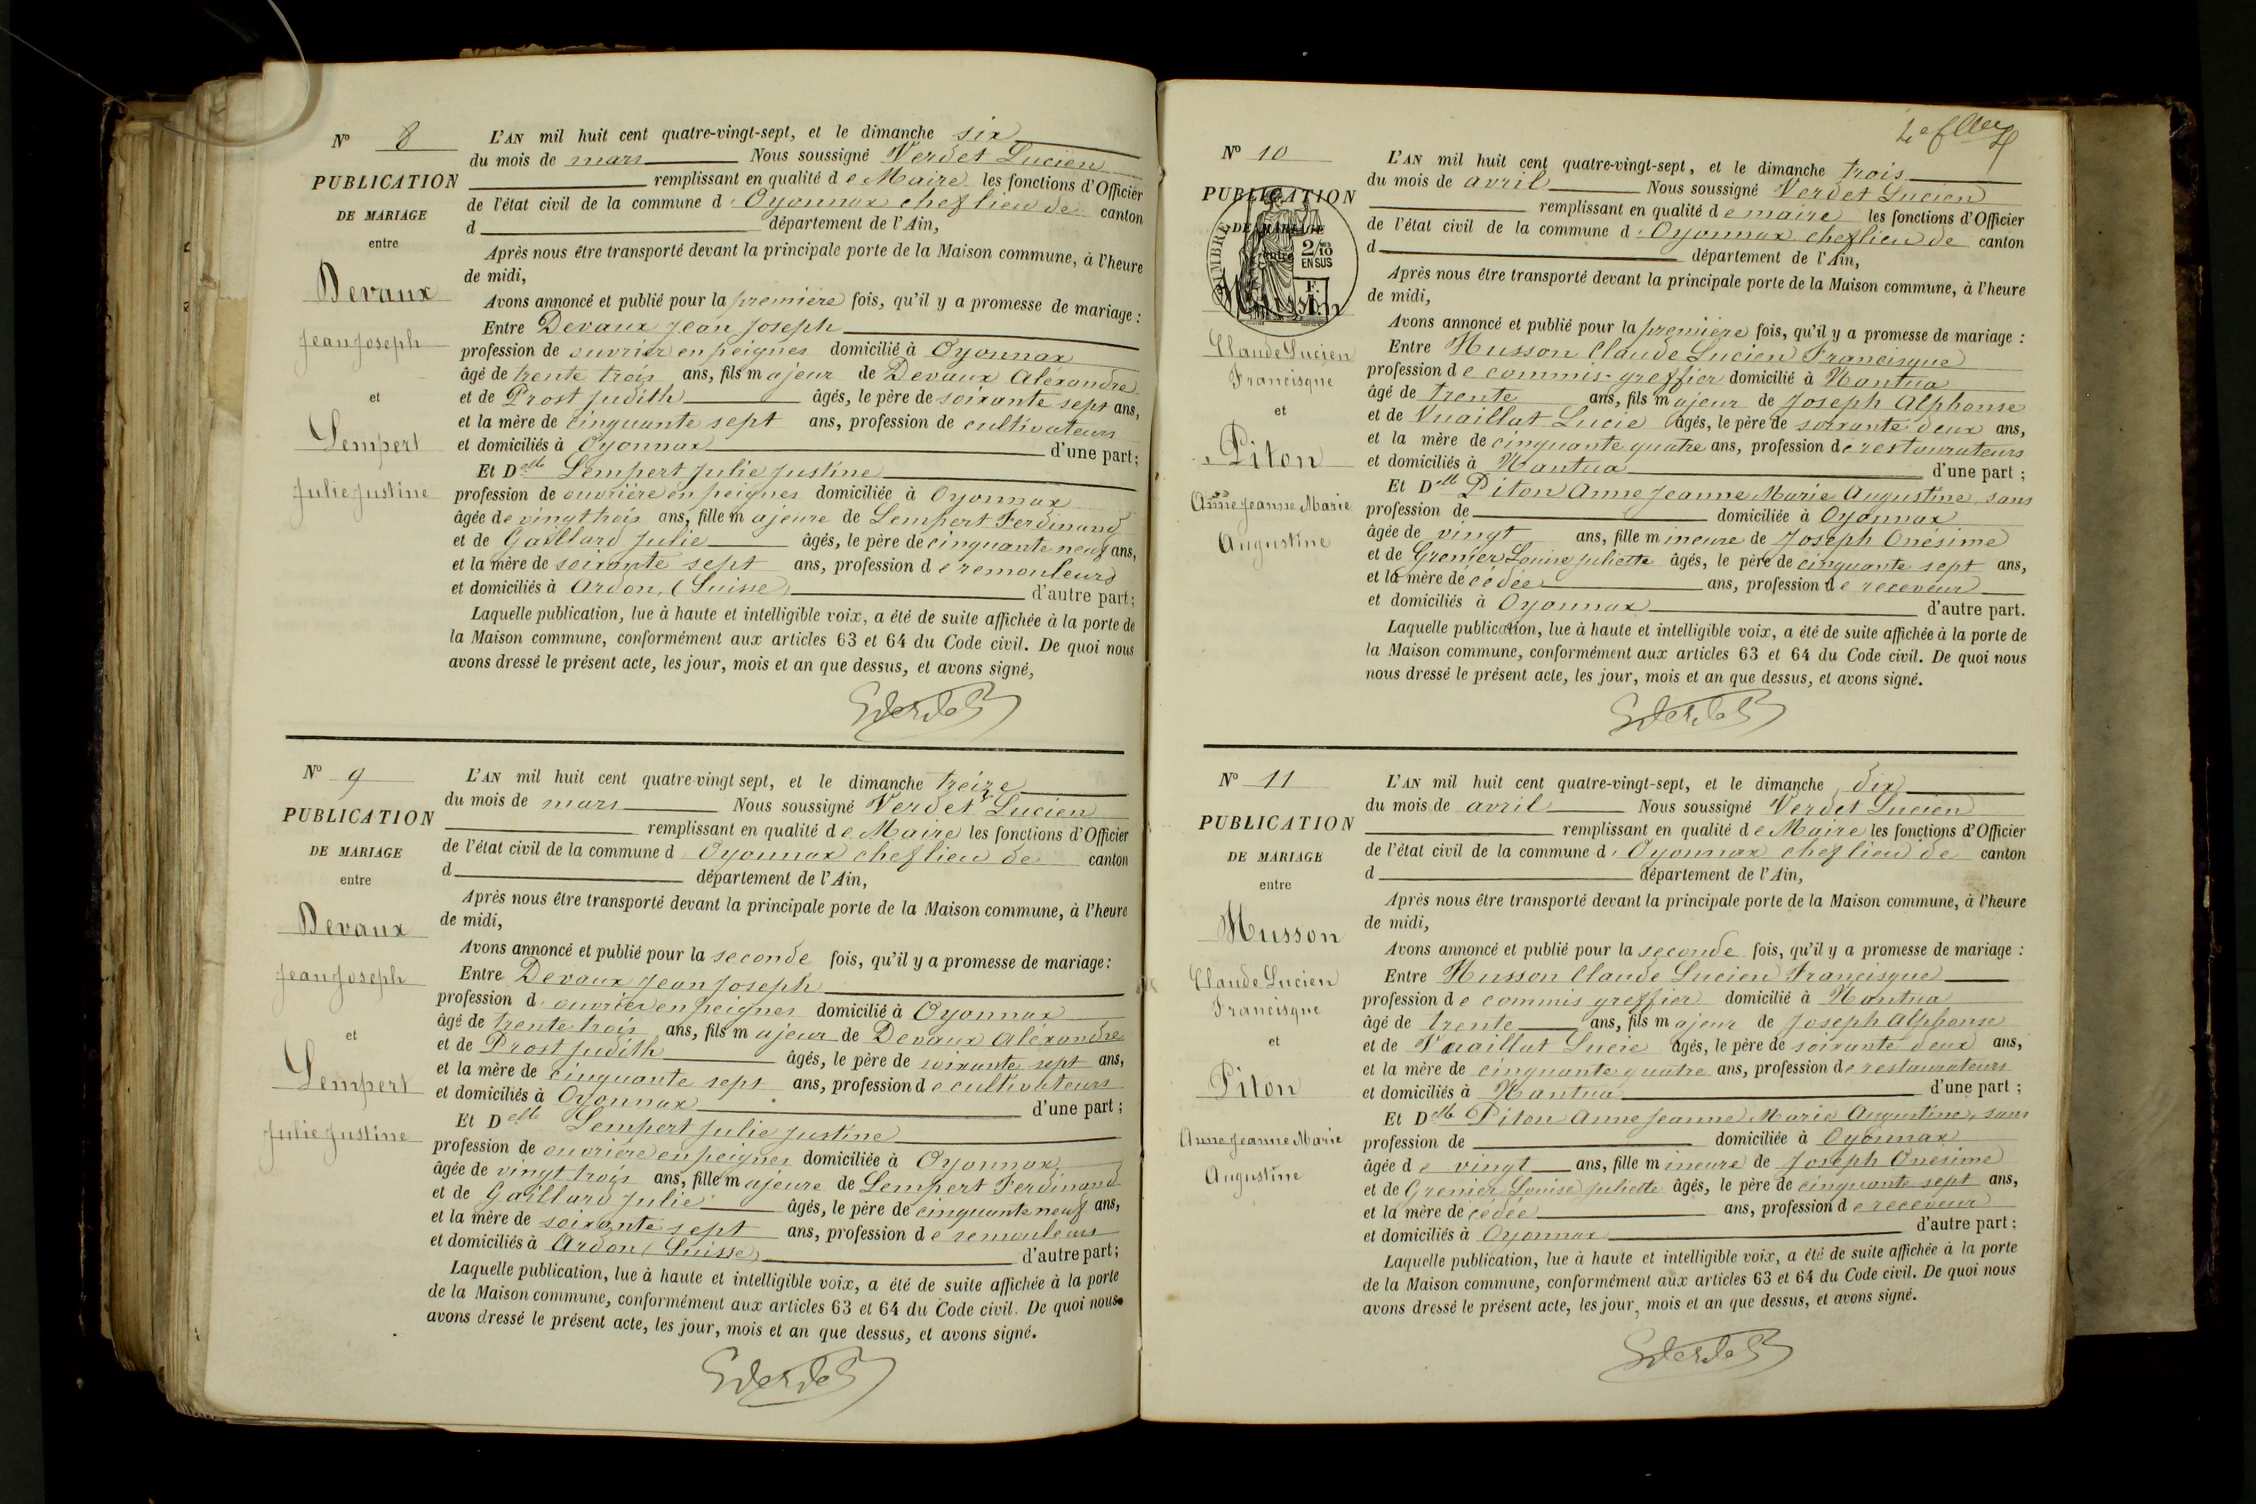 N° 8
PUBLICATION
DE MARIAGE
entre
Devaux
Jean Joseph
et
Lempert
Julie Justine
L'AN mil huit cent quatre-vingt-sept, et le dimanche six
du mois de mars Nous soussigné Verdet Lucien
remplissant en qualité de Maire les fonctions d'Officier
de l'état civil de la commune d'Oyonnax chef lieu de canton
d département de l'Ain,
Après nous être transporté devant la principale porte de la Maison commune, à l'heure
de midi,
Avons annoncé et publié pour la première fois, qu'il y a promesse de mariage :
Entre Devaux Jean Joseph
profession de ouvrier en peignes domicilié à Oyonnax
âgé de trente trois ans, fils majeur de Devaux Aléxandre
et de Prost Judith âgés, le père de soixante sept ans,
et la mère de cinquante sept ans, profession de cultivateurs
et domiciliés à Oyonnax d'une part;
Et Delle Lempert Julie Justine
profession de ouvrière en peignes domiciliée à Oyonnax
âgée de vingt trois ans, fille majeure de Lempert Ferdinand
et de Gaillard Julie âgés, le père de cinquante neuf ans,
et la mère de soixante sept ans, profession de remouleurs
et domiciliés à Ardon (Suisse) d'autre part;
Laquelle publication, lue à haute et intelligible voix, a été de suite affichée à la porte de
la Maison commune, conformément aux articles 63 et 64 du Code civil. De quoi nous
avons dressé le présent acte, les jour, mois et an que dessus, et avons signé,
N° 9
PUBLICATION
DE MARIAGE
entre
Devaux
Jean Joseph
et
Lempert
Julie Justine
L'AN mil huit cent quatre-vingt sept, et le dimanche treize
du mois de mars Nous soussigné Verdet Lucien
remplissant en qualité de Maire les fonctions d'Officier
de l'état civil de la commune d Oyonnax chef lieu de canton
d département de l'Ain,
Après nous être transporté devant la principale porte de la Maison commune, à l'heure
de midi,
Avons annoncé et publié pour la seconde fois, qu'il y a promesse de mariage:
Entre Devaux Jean Joseph
profession d'ouvrier en peignes domicilié à Oyonnax
âgé de trente trois ans, fils majeur de Devaux Aléxandre
et de Prost Judith âgés, le père de soixante sept ans,
et la mère de cinquante sept ans, profession de cultivateurs
et domiciliés à Oyonnax d'une part;
Et Delle Lempert Julie Justine
profession de ouvrière en peignes domiciliée à Oyonnax
âgée de vingt trois ans, fille majeure de Lempert Ferdinand
et de Gaillard Julie âgés, le père de cinquante neuf ans,
et la mère de soixante sept ans, profession de remouleurs
et domiciliés à Ardon (Suisse) d'autre part;
Laquelle publication, lue à haute et intelligible voix, a été de suite affichée à la porte
de la Maison commune, conformément aux articles 63 et 64 du Code civil. De quoi nous
avons dressé le présent acte, les jour, mois et an que dessus, et avons signé.
N° 10
PUBLICATION
DE MARIAGE
entre
TIMBRE
2/10
EN SUS
Claude Lucien
Francisque
et
Piton
Anne Jeanne Marie
Augustine
L'AN mil huit cent quatre-vingt-sept, et le dimanche trois
du mois de avril Nous soussigné Verdet Lucien
remplissant en qualité de maire les fonctions d'Officier
de l'état civil de la commune d'Oyonnax chef lieu de canton
d département de l'Ain,
Après nous être transporté devant la principale porte de la Maison commune, à l'heure
de midi,
Avons annoncé et publié pour la première fois, qu'il y a promesse de mariage :
Entre Husson Claude Lucien Francisque
profession de commis-greffier domicilié à Nantua
âgé de trente ans, fils majeur de Joseph Alphonse
et de Vuaillat Lucie âgés, le père de soixante deux ans,
et la mère de cinquante quatre ans, profession de restaurateurs
et domiciliés à Nantua d'une part ;
Et Delle Piton Anne Jeanne Marie Augustine sans
profession de domiciliée à Oyonnax
âgée de vingt ans, fille mineure de Joseph Onésime
et de Grenier Louise Juliette âgés, le père de cinquante sept ans,
et la mère décédée ans, profession de receveur
et domiciliés à Oyonnax d'autre part.
Laquelle publication, lue à haute et intelligible voix, a été de suite affichée à la porte de
la Maison commune, conformément aux articles 63 et 64 du Code civil. De quoi nous
nous dressé le présent acte, les jour, mois et an que dessus, et avons signé.
N° 11
PUBLICATION
DE MARIAGE
entre
Husson
Claude Lucien
Francisque
et
Piton
Anne Jeanne Marie
Augustine
L'AN mil huit cent quatre-vingt-sept, et le dimanche dix
du mois de avril Nous soussigné Verdet Lucien
remplissant en qualité de Maire les fonctions d'Officier
de l'état civil de la commune d'Oyonnax chef lieu de canton
d département de l'Ain,
Après nous être transporté devant la principale porte de la Maison commune, à l'heure
de midi,
Avons annoncé et publié pour la seconde fois, qu'il y a promesse de mariage :
Entre Husson Claude Lucien Francisque
profession de commis greffier domicilié à Nantua
âgé de trente ans, fils majeur de Joseph Alphonse
et de Vuaillat Lucie âgés, le père de soixante deux ans,
et la mère de cinquante quatre ans, profession de restaurateurs
et domiciliés à Nantua d'une part ;
Et Delle Piton Anne Jeanne Marie Augustine, sans
profession de domiciliée à Oyonnax
âgée de vingt ans, fille mineure de Joseph Onésime
et de Grenier Louise Juliette âgés, le père de cinquante sept ans,
et la mère decédée ans, profession de receveur
et domiciliés à Oyonnax d'autre part ;
Laquelle publication, lue à haute et intelligible voix, a été de suite affichée à la porte
de la Maison commune, conformément aux articles 63 et 64 du Code civil. De quoi nous
avons dressé le présent acte, les jour, mois et an que dessus, et avons signé.